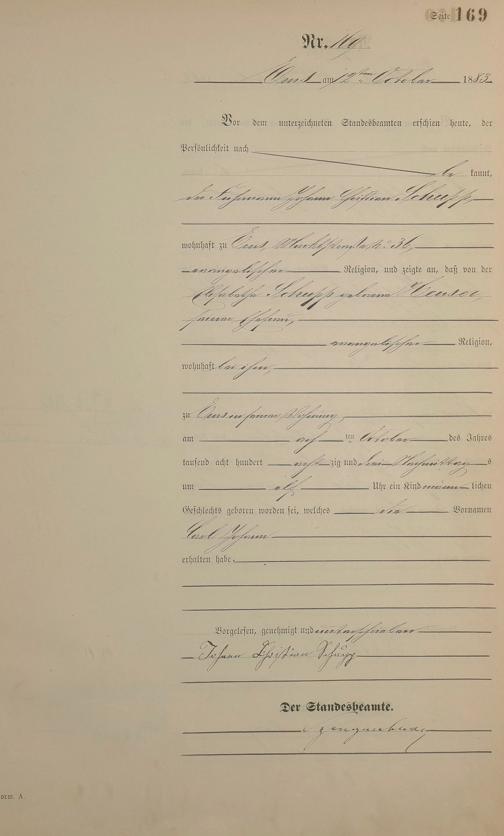 Seite 169
Nr. 169
Ems am 12ten October 1883
Vor dem unterzeichneten Standesbeamten erschien heute, der
Persönlichkeit nach
be kannt,
der Johann Christian Schupp
wohnhaft zu Ems, 36,
evangelischer Religion, und zeigte an, daß von der
Elisabethe Schupp geborene
seiner Ehefrau,
evangelischer Religion,
wohnhaft bei ihm,
zu Ems in seiner Wohnung,
am ten October des Jahres
tausend acht hundert acht zig und drei Vormittags
um elf Uhr ein Kind männ lichen
Geschlechts geboren worden sei, welches die Vornamen
Carl Johann
erhalten habe.
Vorgelesen, genehmigt und unterschrieben
Johann Christian Schupp
Der Standesbeamte.
orm. A.